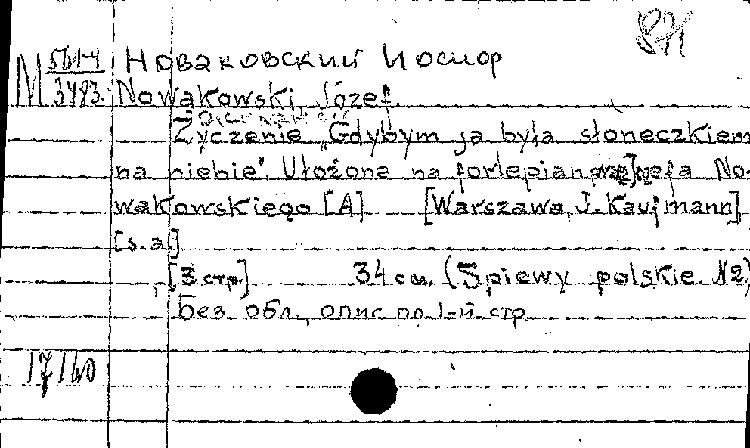 871
M 5614/3493 Новаковский Иосиф
Nowakowski, Józef.
Życzenie „Gdybym ja była słoneczkiem
na niebie". Ułożone na fortepian przez Józefa No-
wakowskiego [A] [Warszawa, J. Kaufmann],
[s.a.]
[3 стр.] 34 см. (Śpiewy polskie №2)
Без обл., опис по 1-й стр
17/60